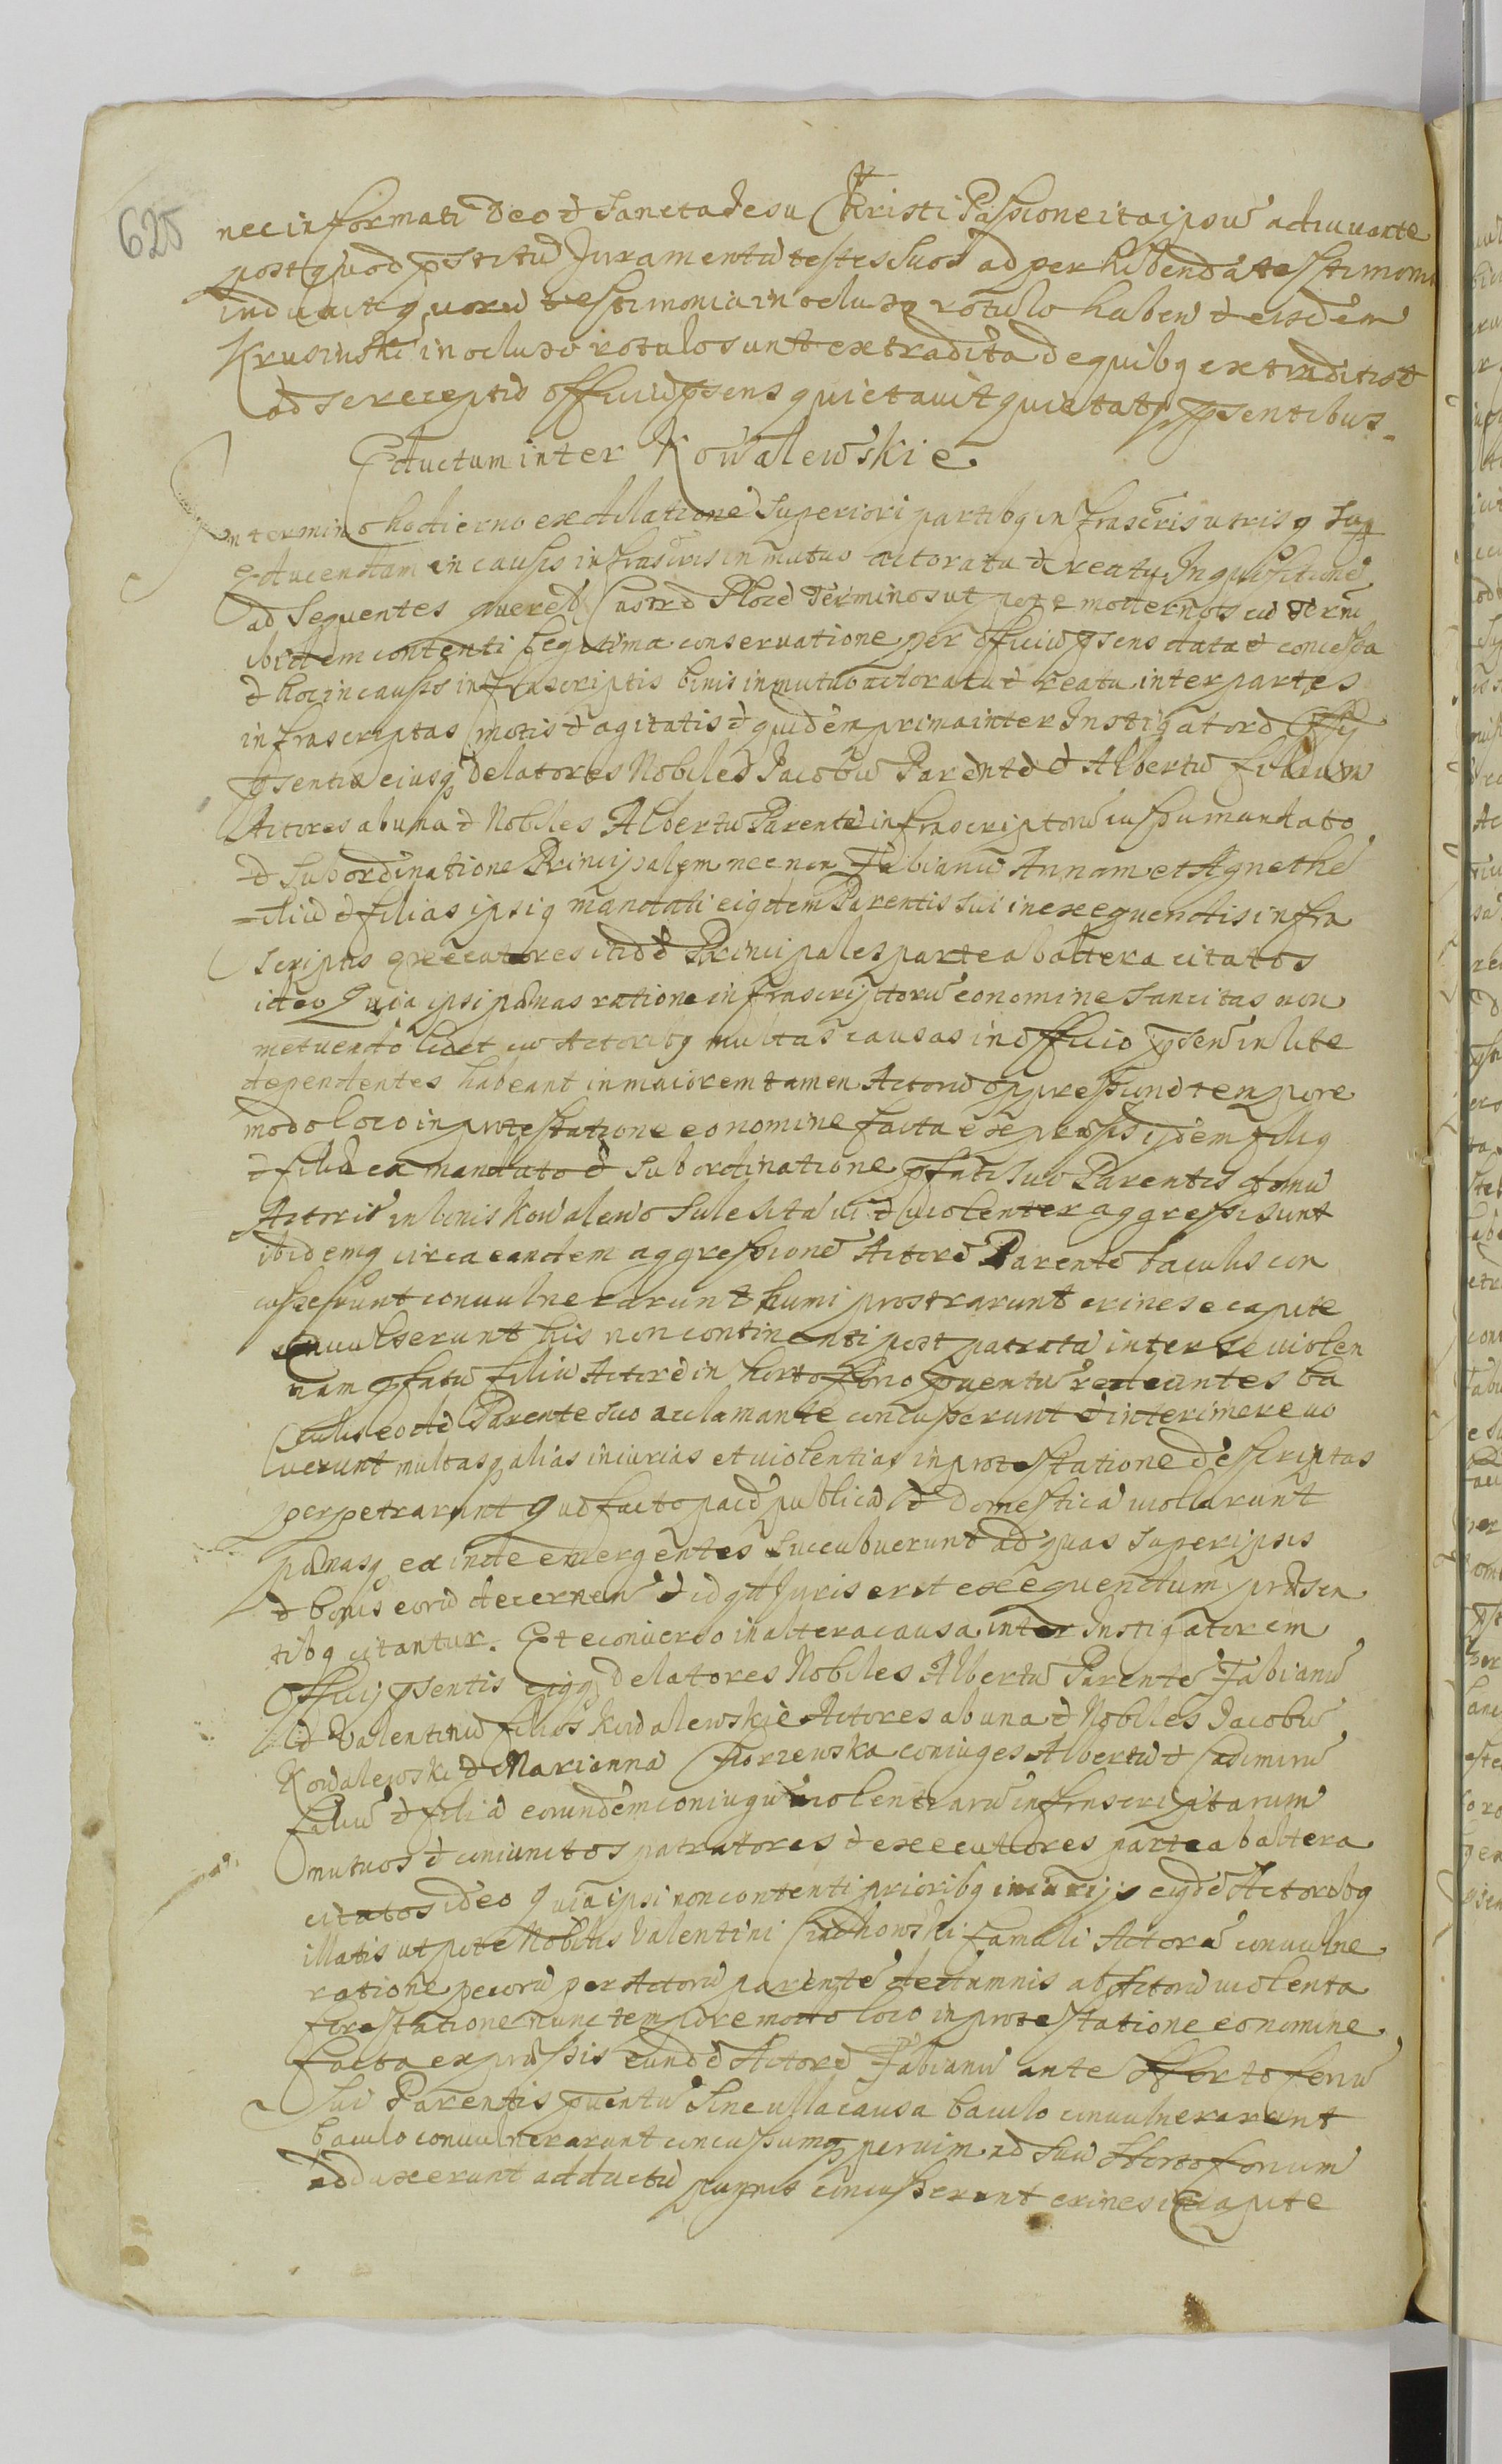 625
nec informati Deo et Sancta Jesu Christi Passione ita ipsum adiuvante
post quod pstitū Juramentū testes suos ad perhibenda testimonia
induxit quorū testimonia in ocluso rotulo haben et eisdem
Krusinski in ocluso rotulo sunt extradita de quibq extraditis et
ad se receptis officiū psens quietavit quietatq psentibus
Eductum inter Kowalewskie
In termino hodierno ex dilatione superiori partibq infrascris utrisq
Educendam in causis infrascris in mutuo actoratu et reatu Inquisitione
ad sequentes querel Castr Ploc Terminos ut pote modernos
ibidem contenti legitima conservatione per officiū psens data et concessa
et hoc in causis infrascriptis binis in mutuo actoratu et reatu inter partes
infrascriptas motis et agitatis et quidem prima inter Instigatore Offy
psentis eiusq delatores Nobiles Jacobū Parente et Albertū filium
Actores ab una et Nobiles Albertū Parente infrascriptorū iussu mandato
et subordinatione Principalem nec non Fabianū Annam et Agnethe
filiū et filias ipsiq mandati eiqdem Parentis sui in exequendis infra
scriptis executores itide Principales parte ab altera citatos
ideo Quia ipsi pænas ratione infrascriptorū eo nomine sancitas non
metuendo licet cū Actoribq multas causas in officio psen in lite
dependentes habeant in maiorem tamen Actorū oppressione tempore
modo loco in protestatione eo nomine facta expressis ijdem filiq
et filiæ ex mandato et subordinatione pfati sui Parentis domū
Actoris in bonis Kowalewo Sulesita vi et violenter aggressi sunt
ibidemq circa eandem aggressione Actore Parente baculis con
cusserunt convulnerarunt humi prostrarunt crines e capite
convulserunt his non contenti post patrata inter se violen
nam pfatū filiū Actore in horto suo pventū redeuntes ba
culis eode Parente suo acclamante concusserunt et interimere vo
luerunt multasq alias iniurias et violentias in protestatione descriptas
perpetrarunt quo facto pace publica et domestica violarunt
pænasq exinde emergentes succubuerunt ad quas super ipsis
et bonis eorū decernen et id qd Juris erit exequendum præsen
tibq citantur. Et econverso in altera causa inter Instigatorem
Officij psentis eiqq delatores Nobiles Albertū Parente Fabianū
et Valentinū filios Kowalewskie Actores ab una et Nobiles Jacobū
Kowalewski et Marianna coniuges Albertū et Casimirū
filiū et filia eorundem coniugū violentiarū infrascriptarum
mutuos et coniunctos patratores et executores parte ab altera
citatos ideo Quia ipsi non contenti prioribq iniurijs eiqde Actoribq
illatis utpote Nobilis Valentini Ciachowski famuli Actorū convulne
ratione pecorū per Actorū parente de alumnis ab Actorū violenta
forestatione nunc tempore modo loco in protestatione eo nomine
facta expressis eunde Actore Fabianū ante Hortofenū
sui Parentis pventū sine ulla causa baculo convulnerarunt
baculo convulnerarunt concussumq per vim ad suū Hortofonum
adduxerunt adductū pugnis concusserunt crines e Capite